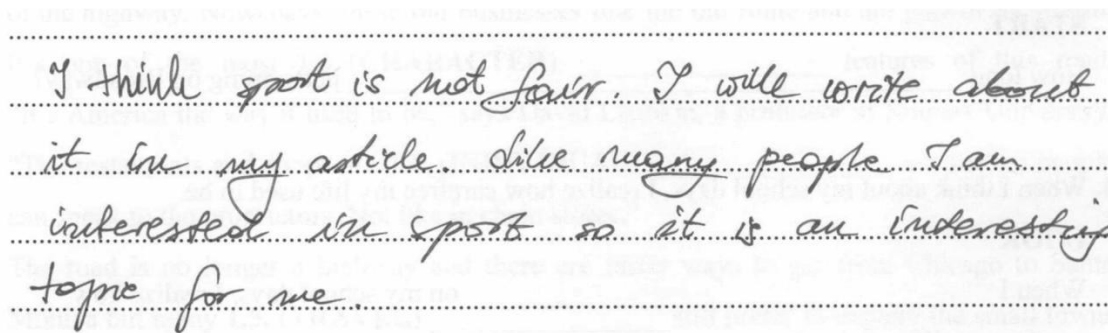 I think sport is not fair. I will write about
it in my article. Like many people I am
interested in sport so it is an interestin
topic for me.